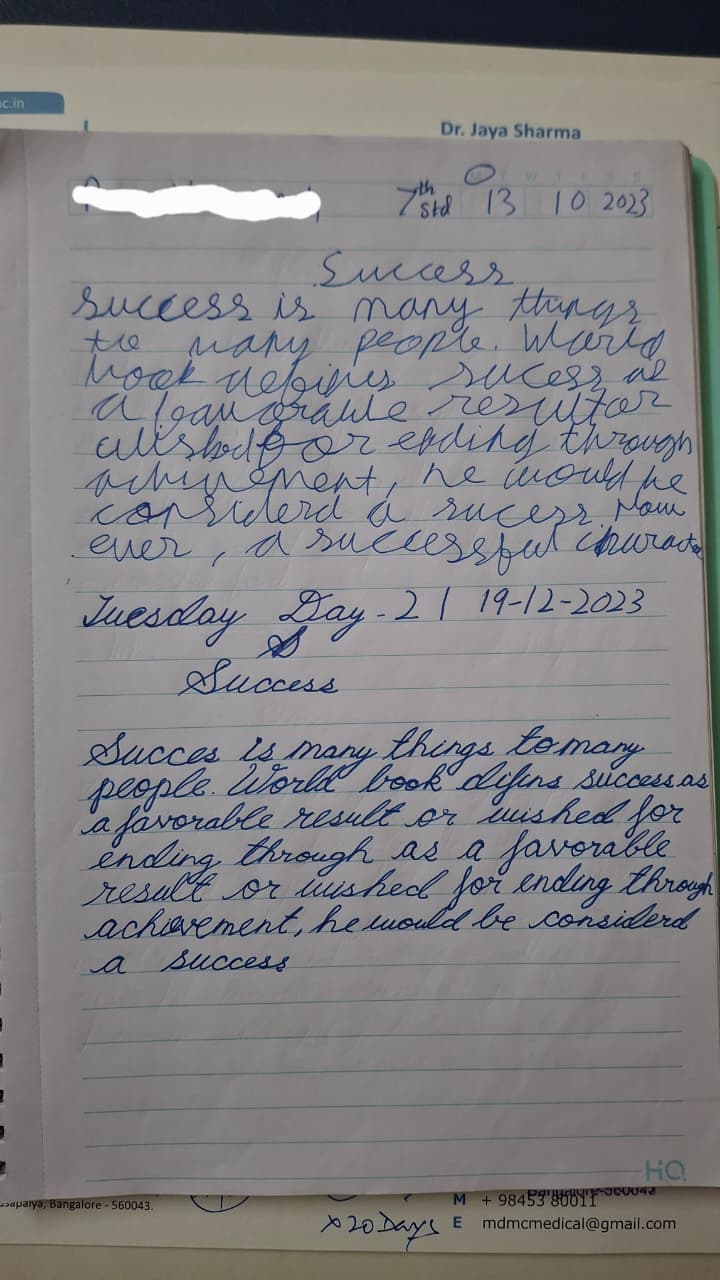 c.in
Dr. Jaya Sharma
7th Std 13 10 2023
Success
success is many things
to many people. World
book defines sucess as
a favorable result or
wished for ending through
achivement, he would be
considerd a sucess. How
ever, a successful characte
Tuesday Day-21 19-12-2023
S
Success
Succes is many things to many
people. World book difins success as
a favorable result or wished for
ending through as a favorable
result or wished for ending through
achievement, he would be considerd
a success
HQ
Bangalore - 560043.
Bangalore-560043
M + 98453 80011
x 20 Days
E mdmcmedical@gmail.com